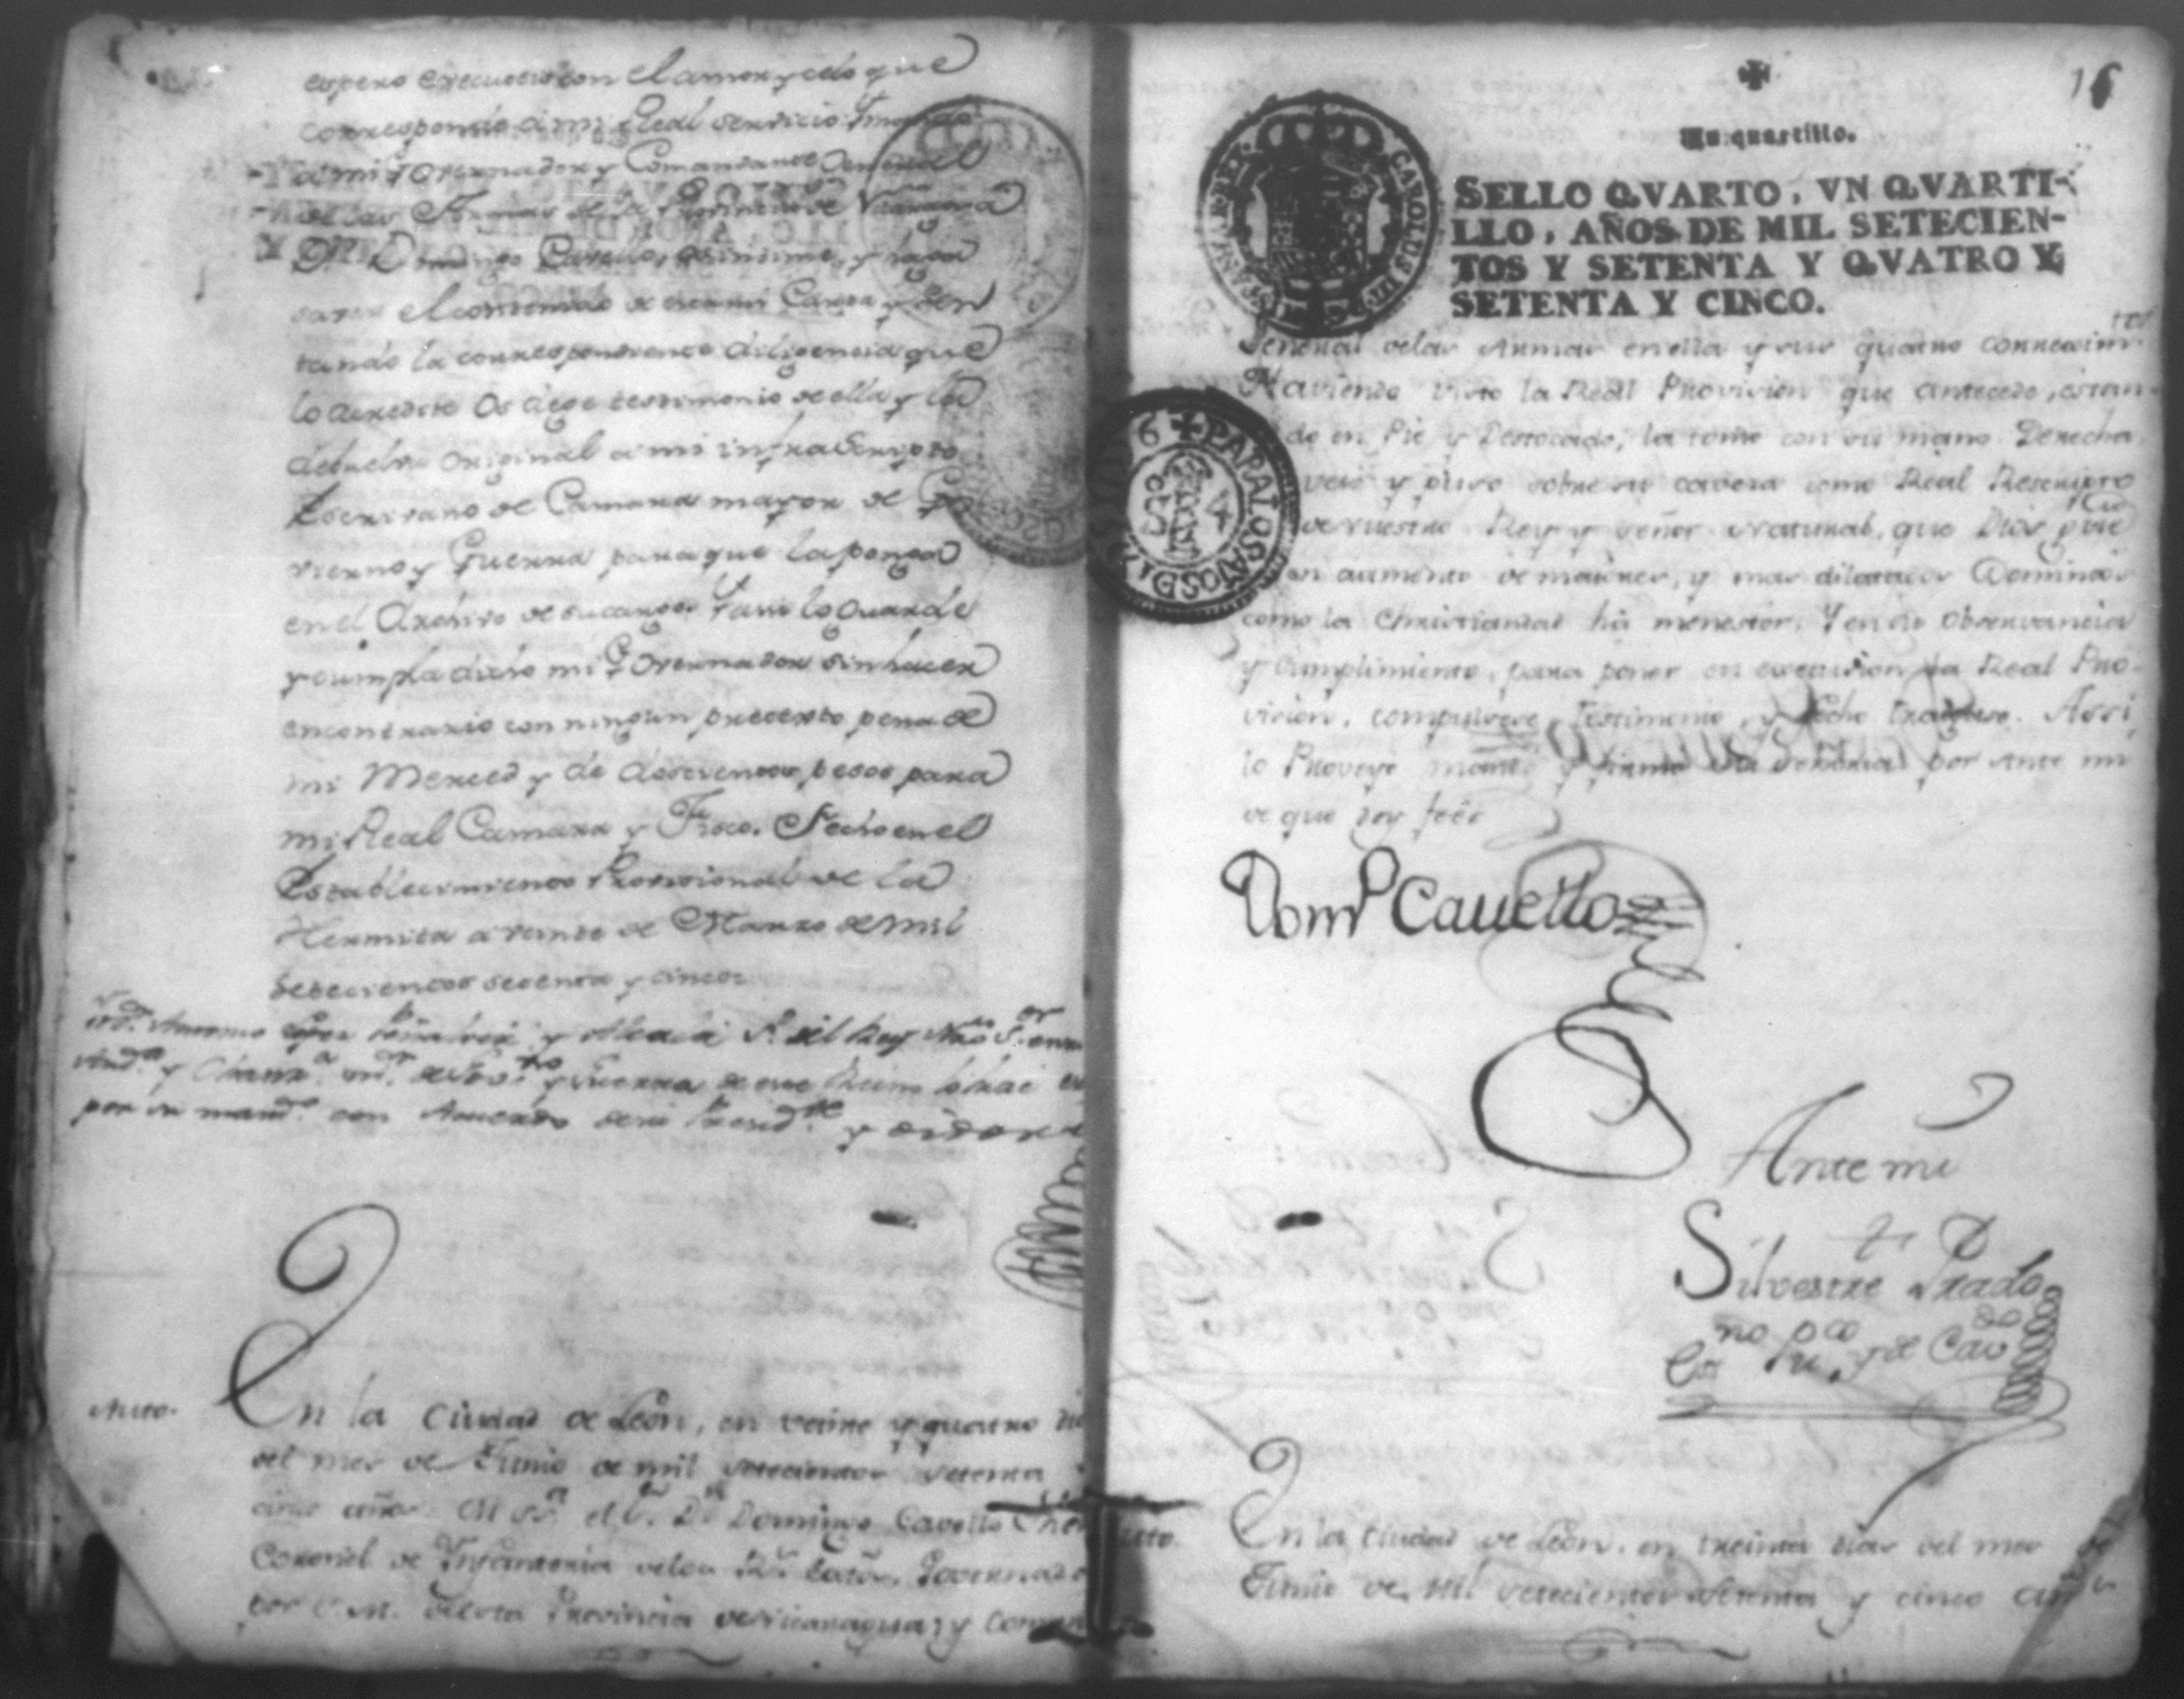 espero executeis con el amor y celo que
corresponde a mi Real servicio Y mando
a mi Governador y Comandante General
de las Armas de la Provincia de Nicaragua
Dn. Domingo Cavello, y haga
el contenido de esta mi Carta y sen
tando la correspondiente diligencia que
lo acredite Os dege testimonio de ella y la
debuelva original a mi infrascripto
Escrivano de Camara mayor de Go
vierno y Guerra para que la ponga
en el Archivo de su cargo. Y assi lo guarde
y cumpla dicho mi Governador sin hacer
en contrario con ningun pretexto pena de
mi Merced y de doscientos pesos para
mi Real Camara y Fisco. Fecho en el
Establecimiento Provisional de la
Hermita a veinte de Marzo de mil
setecientos setenta y cinco
Antonio Lopez Peñalver y Alcala del Rey Nro Sr
y Camra. mr. de Govno. y Guerra de este Reino la hice
por su mando. con Acuerdo de su Presidte. y oidores
Auto.
En la Ciudad de Leon, en veinte y quatro di
del mes de Junio de mil setecientos setenta
cinco años. El Sr. Dn Domingo Cavello
Coronel de Infanteria delos Rs. Governado
por S. M. de esta Provincia de Nicaragua, y Coman
16
Un quartillo.
SELLO QVARTO, VN QVARTI-
LLO, AÑOS DE MIL SETECIEN-
TOS Y SETENTA Y QVATRO Y
SETENTA Y CINCO.
CAROLUS III
PARA LOS AÑOS D 1776
General delas Armas en ella y sus quatro correximtos.
Haviendo visto la Real Provision que antecede, estan-
do en Pie y Destocado, la tomó con su mano Derecha
vesó y puso sobre su caveza como Real Rescripto
de nuestro Rey y señor Natural, que Dios gde
en aumento de maiores, y mas dilatados Dominios
como la Christiandad ha menester. Y en su observancia
y cumplimiento, para poner en execusion la Real Pro-
vision, compulsese Testimonio, y fecho traigase. Assi
lo Proveyó mandó y firmó Su Señoria por ante mi
de que doy feé
Domo Cavello
Ante mi
Silvestre Prado
Esno Puco y de Cavdo
Auto.
En la Ciudad de Leon, en treinta dias del mes de
Junio de mil setecientos setenta y cinco años